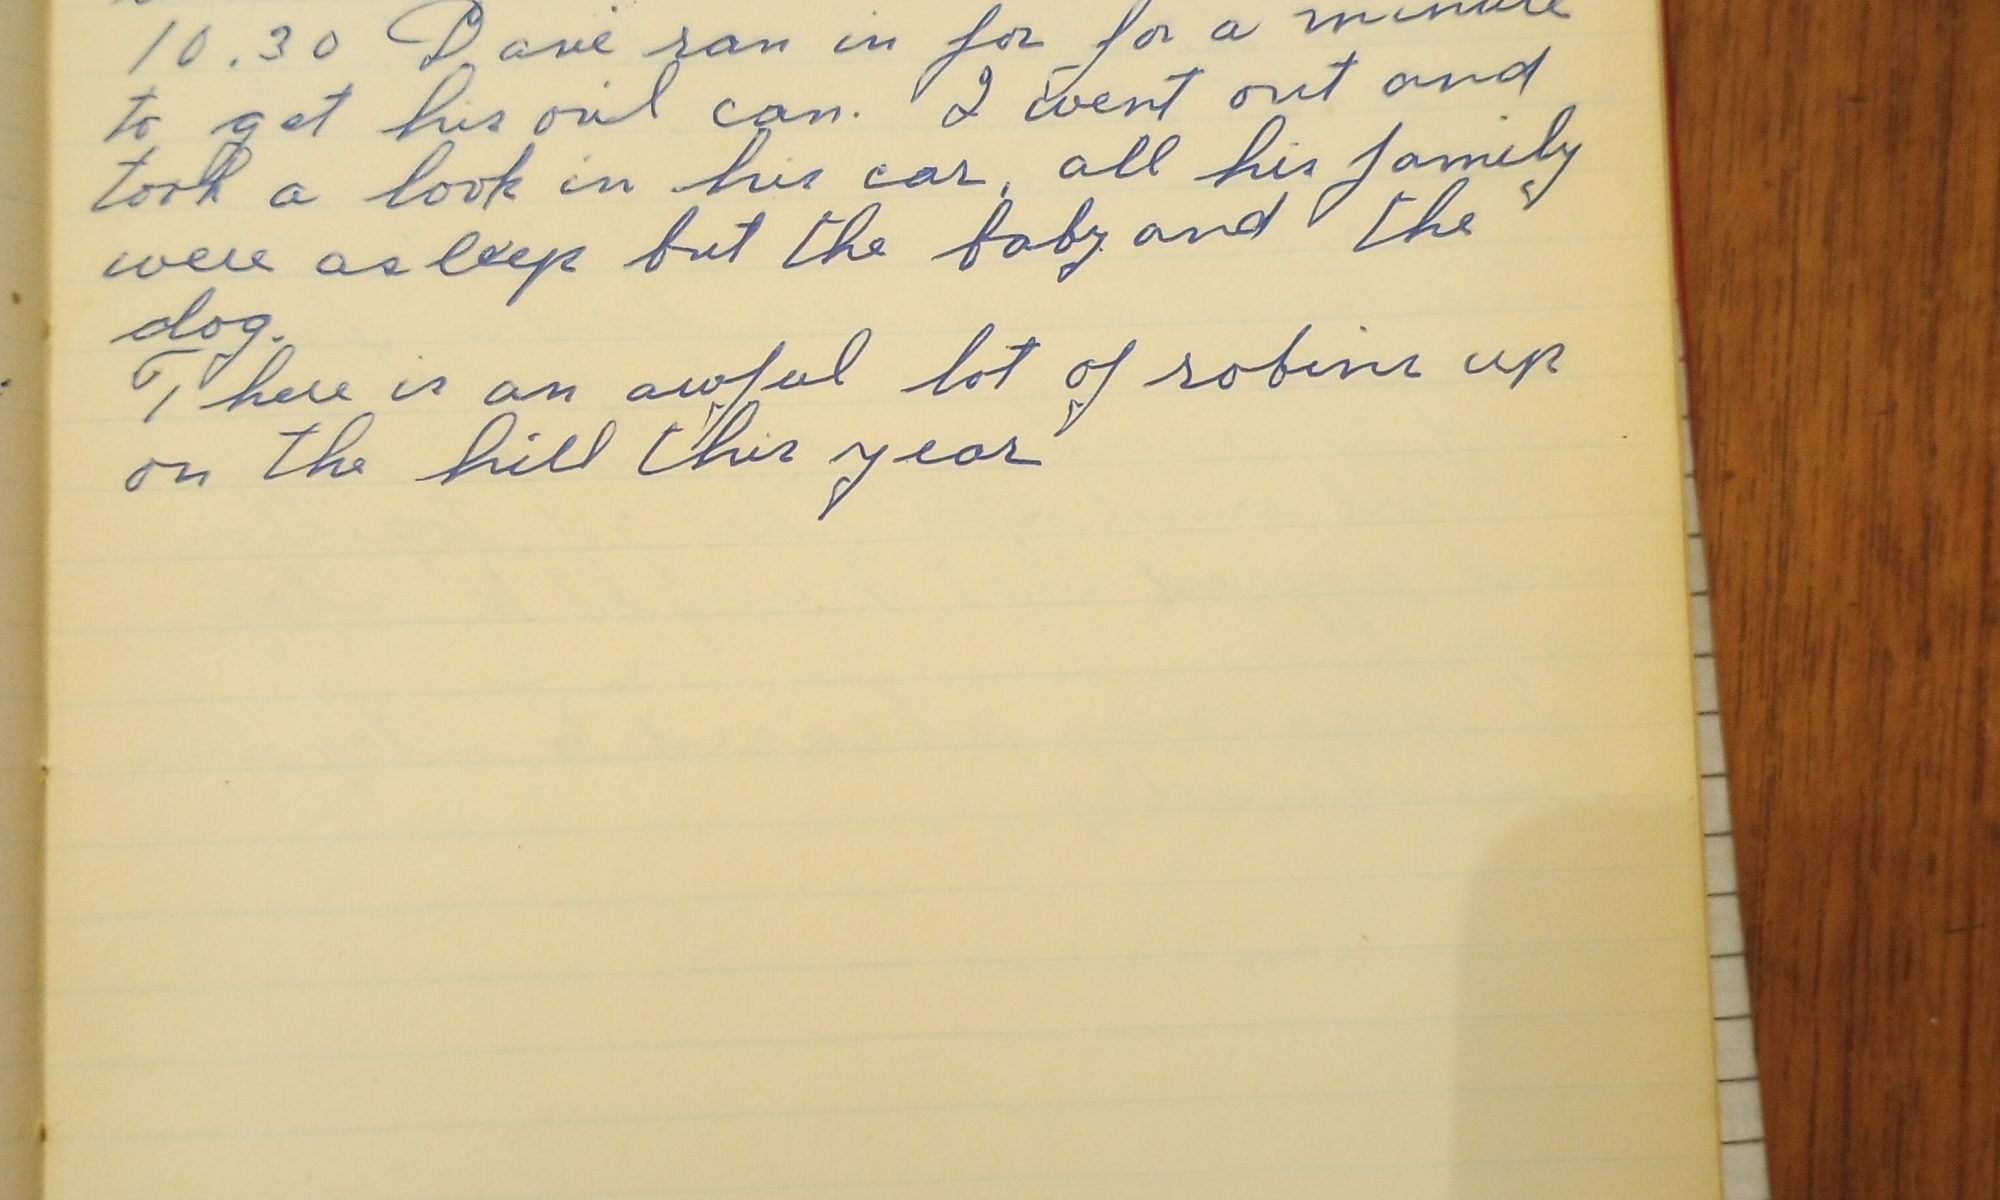 10.30 Dave ran in for for a minute
to get his oil can. I went out and
took a look in his car, all his family
were asleep but the baby and the
dog.
There is an awful lot of robins up
on the hill this year